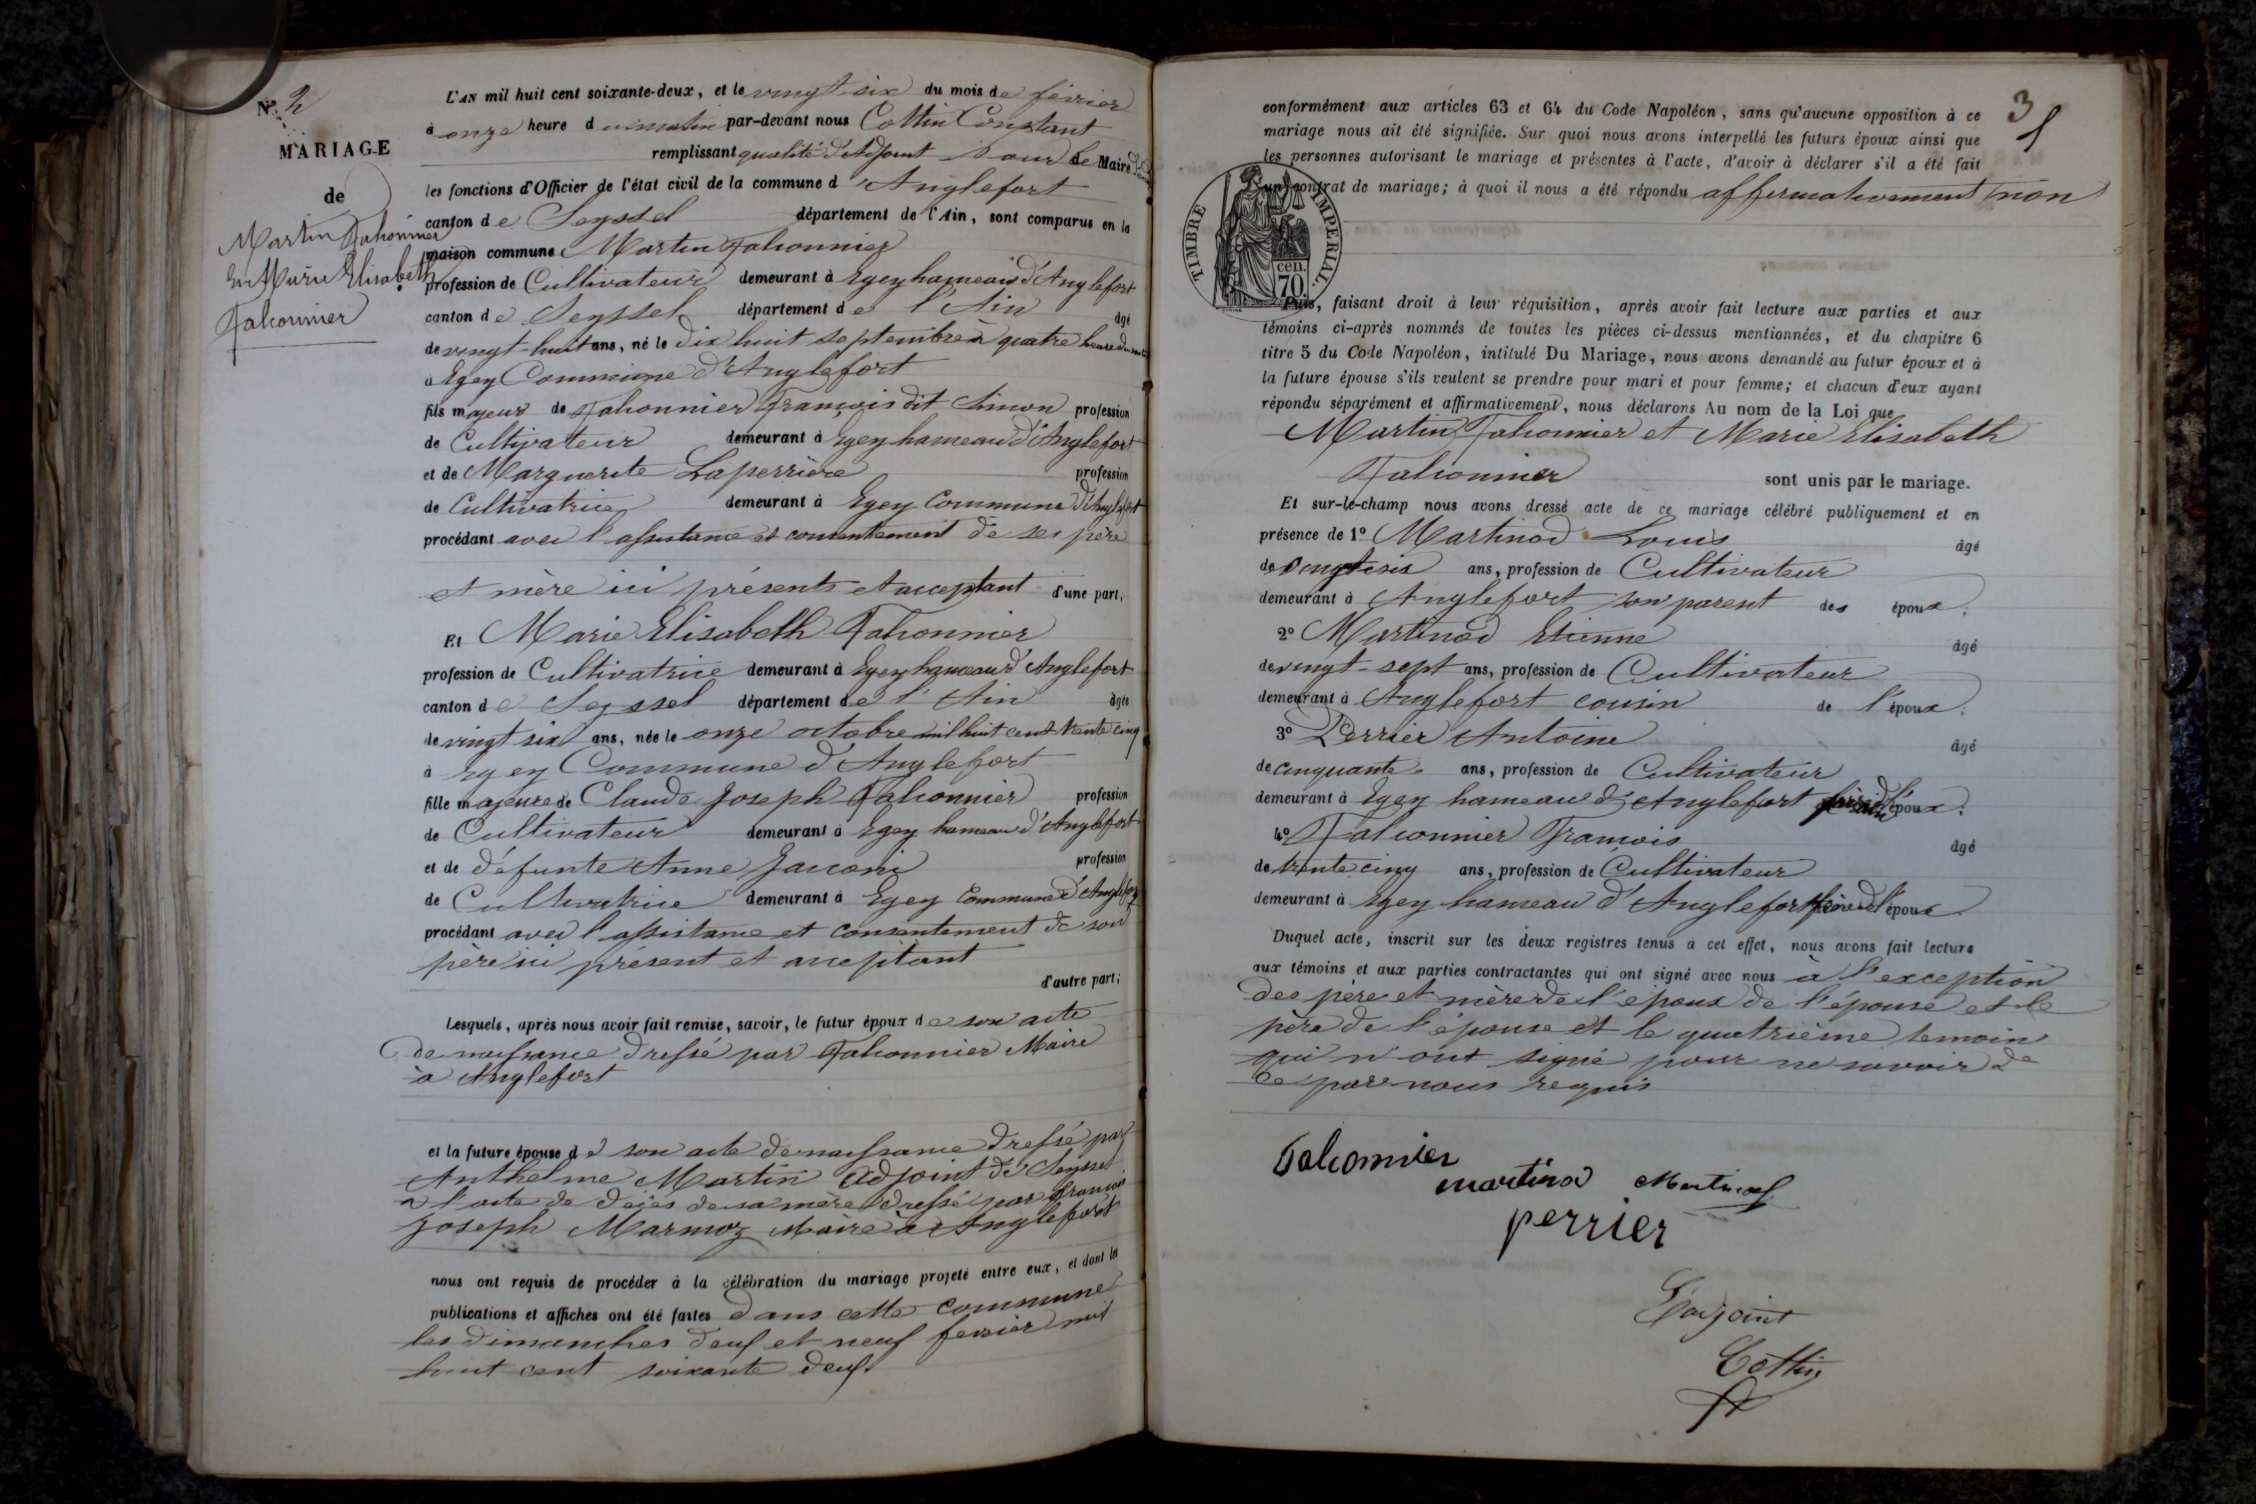 N° 2
MARIAGE
de
Martin Falconnier
et Marie Elisabeth
Falconnier
L'AN mil huit cent soixante-deux, et le vingt-six du mois de février
à onze heure du matin par-devant nous Cottin Constant
remplissant qualité d'Adjoint pour le Maire
les fonctions d'Officier de l'état civil de la commune d'Anglefort
canton de Seyssel département de l'Ain, sont comparus en la
maison commune Martin Falconnier
profession de Cultivateur demeurant à Egey hameau d'Anglefort
canton de Seyssel département de l'Ain âgé
de vingt-huit ans, né le dix huit septembre à quatre heure du
à Egey Commune d'Anglefort
fils majeur de Falconnier François dit Simon profession
de Cultivateur demeurant à Egey hameau d'Anglefort
et de Marguerite Laperrière profession
de Cultivatrice demeurant à Egey Commune d'Anglefort
procédant avec l'assistance et consentement de ses père
et mère ici présents et acceptant d'une part;
Et Marie Elisabeth Falconnier
profession de Cultivatrice demeurant à Egey hameau d'Anglefort
canton de Seyssel département de l'Ain âgée
de vingt six ans, née le onze octobre mil huit cent trente cinq
à Egey Commune d'Anglefort
fille majeure de Claude Joseph Falconnier profession
de Cultivateur demeurant à Egey hameau d'Anglefort
et de défunte Anne profession
de Cultivatrice demeurant à Egey Commune d'Anglefort
procédant avec l'assistance et consentement de son
père ici présent et acceptant
d'autre part;
Lesquels, après nous avoir fait remise, savoir, le futur époux de son acte
de naissance dressé par Falconnier Maire
à Anglefort
et la future épouse de son acte de naissance dressé par
Anthelme Martin Adjoint de Seyssel
a l'acte de décès de sa mère dressé par François
Joseph Marmoz Maire à Anglefort
nous ont requis de procéder à la célébration du mariage projeté entre eux, et dont les
publications et affiches ont été faites dans cette commune
les dimanches deux et neuf fevrier mil
huit cent soixante deux
3
conformément aux articles 63 et 64 du Code Napoléon, sans qu'aucune opposition à ce
mariage nous ait été signifiée. Sur quoi nous avons interpellé les futurs époux ainsi que
les personnes autorisant le mariage et présentes à l'acte, d'avoir à déclarer s'il a été fait
un contrat de mariage; à quoi il nous a été répondu affermativement non
TIMBRE IMPERIAL.
cen.
70
Puis, faisant droit à leur réquisition, après avoir fait lecture aux parties et aux
témoins ci-après nommés de toutes les pièces ci-dessus mentionnées, et du chapitre 6
titre 5 du Code Napoléon, intitulé Du Mariage, nous avons demandé au futur époux et à
la future épouse s'ils veulent se prendre pour mari et pour femme; et chacun d'eux ayant
répondu séparément et affirmativement, nous déclarons Au nom de la Loi que
Martin Falconnier et Marie Elisabeth
Falconnier sont unis par le mariage.
Et sur-le-champ nous avons dressé acte de ce mariage célébré publiquement et en
présence de 1° Martinod Louis âgé
de vingt six ans, profession de Cultivateur
demeurant à Anglefort son parent des époux.
2° Martinod Etienne âgé
de vingt-sept ans, profession de Cultivateur
demeurant à Anglefort cousin de l'époux.
3° Perrier Antoine âgé
de cinquante ans, profession de Cultivateur
demeurant à Egey hameau d'Anglefort époux.
4° Falconnier François âgé
de trente cinq ans, profession de Cultivateur
demeurant à Egey hameau d'Anglefort frère de l'époux
Duquel acte, inscrit sur les deux registres tenus à cet effet, nous avons fait lecture
aux témoins et aux parties contractantes qui ont signé avec nous à l'exception
des père et mère de l'époux de l'épouse et le
père de l'épouse et le quatrième temoin
qui n'ont signé pour ne savoir de
ce par nous requis
Falconnier
martinod Martinod
perrier
L'adjoint
Cottin